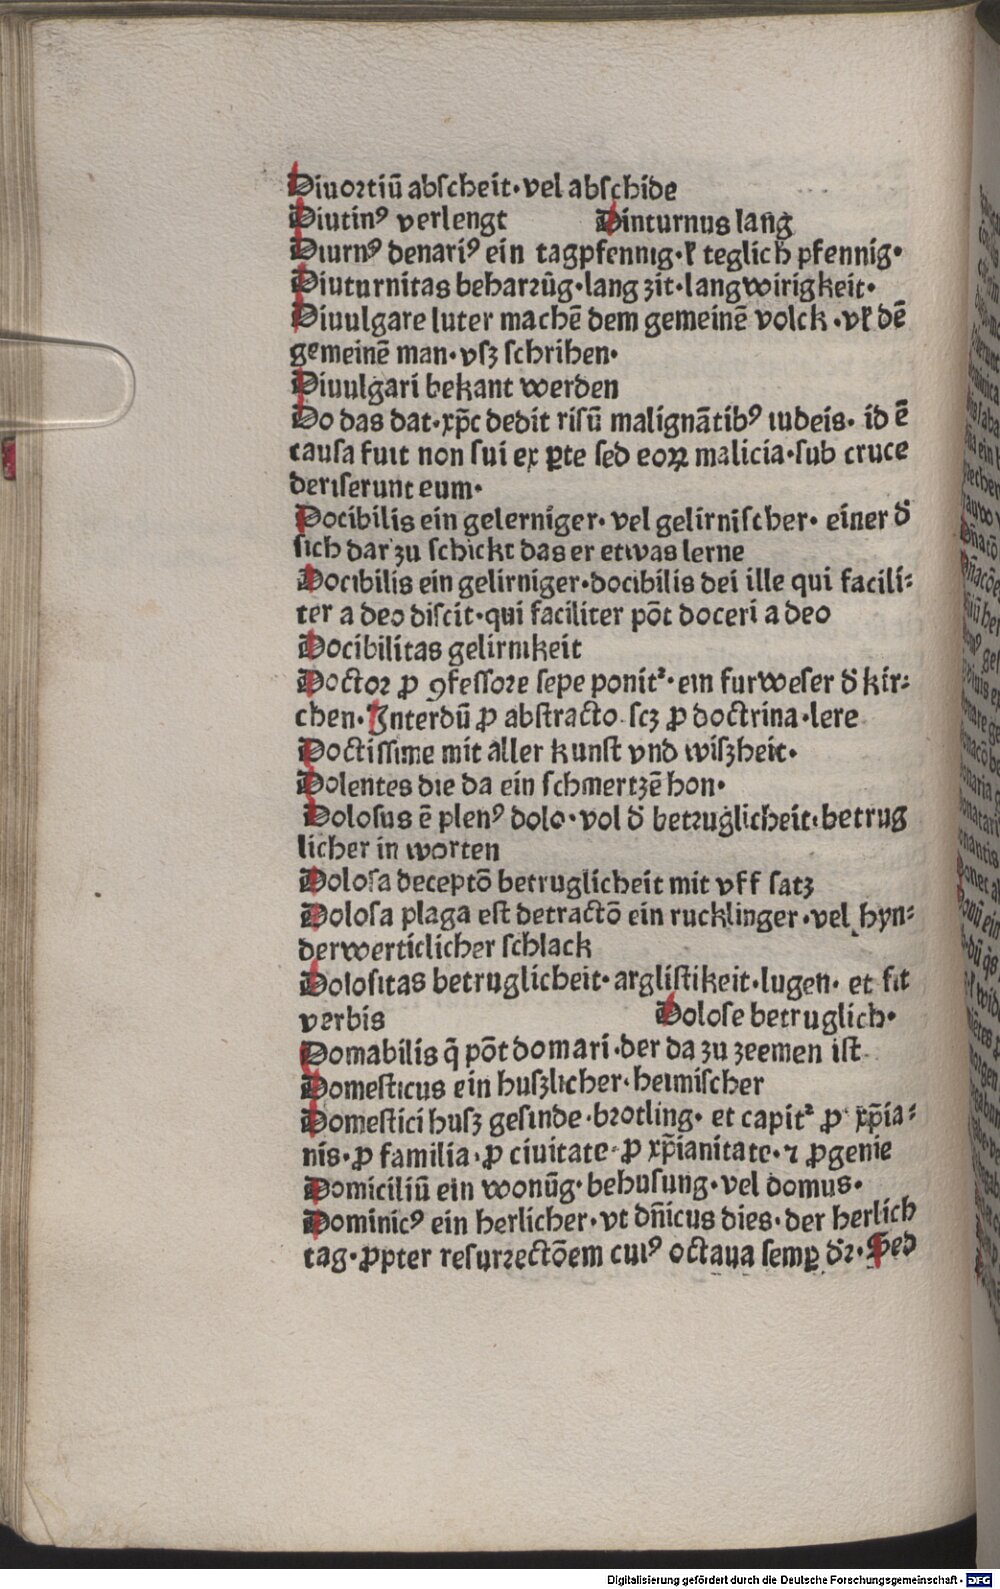 Diuortiū abſcheit·vel abſchide
Diutinꝰ verlengt Dinturnus lang̃
Diurnꝰ denariꝰ ein tagpfennig·ꝉ teglich pfennig·
Diuturnitas beharrūg·lang zit·langwirigkeit·
Diuulgare luter machē dem gemeinē volck·vꝉ dē
gemeinē man·vſz ſchriben·
Diuulgari bekant werden
Do das dat·xp̄c dedit riſū malignātibꝰ iudeis· id ē
cauſa fuit non ſui ex ꝑte ſed eoꝝ malicia·ſub cruce
deriſerunt eum·
Docibilis ein gelerniger· vel gelirniſcher· einer d̄
ſich dar zu ſchickt das er etwas lerne
Docibilis ein gelirniger·docibilis dei ille qui facili⸗
ter a deo diſcit·qui faciliter pōt doceri a deo
Docibilitas gelirnikeit
Doctor ꝓ ꝯfeſſore ſepe ponitᷣ·ein furweſer d̄ kir⸗
chen·Interdū ꝓ abſtracto ſcz ꝓ doctrina·lere
Doctiſſime mit aller kunſt vnd wiſzheit·
Dolentes die da ein ſchmertzē hon·
Doloſus ē plenꝰ dolo·vol d̄ betruglicheit·betrug
licher in worten
Doloſa deceptō betruglicheit mit vff ſatz
Doloſa plaga eſt detractō ein rucklinger·vel hyn⸗
derwerticlicher ſchlack
Doloſitas betruglicheit·argliſtikeit·lugen· et fit
verbis Doloſe betruglich·
Domabilis q̄ pōt domari·der da zu zeemen iſt
Domeſticus ein huſzlicher·heimiſcher
Domeſtici huſz geſinde·brotling· et capitᷣ ꝓ xp̄ia⸗
nis·ꝓ familia·ꝓ ciuitate·ꝓ xp̄ianitate·⁊ ꝓgenie
Domiciliū ein wonūg·behuſung·vel domus·
Dominicꝰ ein herlicher·vt dn̄icus dies·der herlich
tag·ꝓpter reſurrectōem cuiꝰ octaua ſemꝑ d̄r·Sed
Digitalisierung gefördert durch die Deutsche Forschungsgemeinschaft - DFG